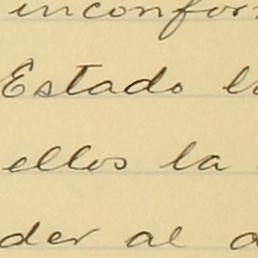 inconfor
Estado l
ellos la
der al a